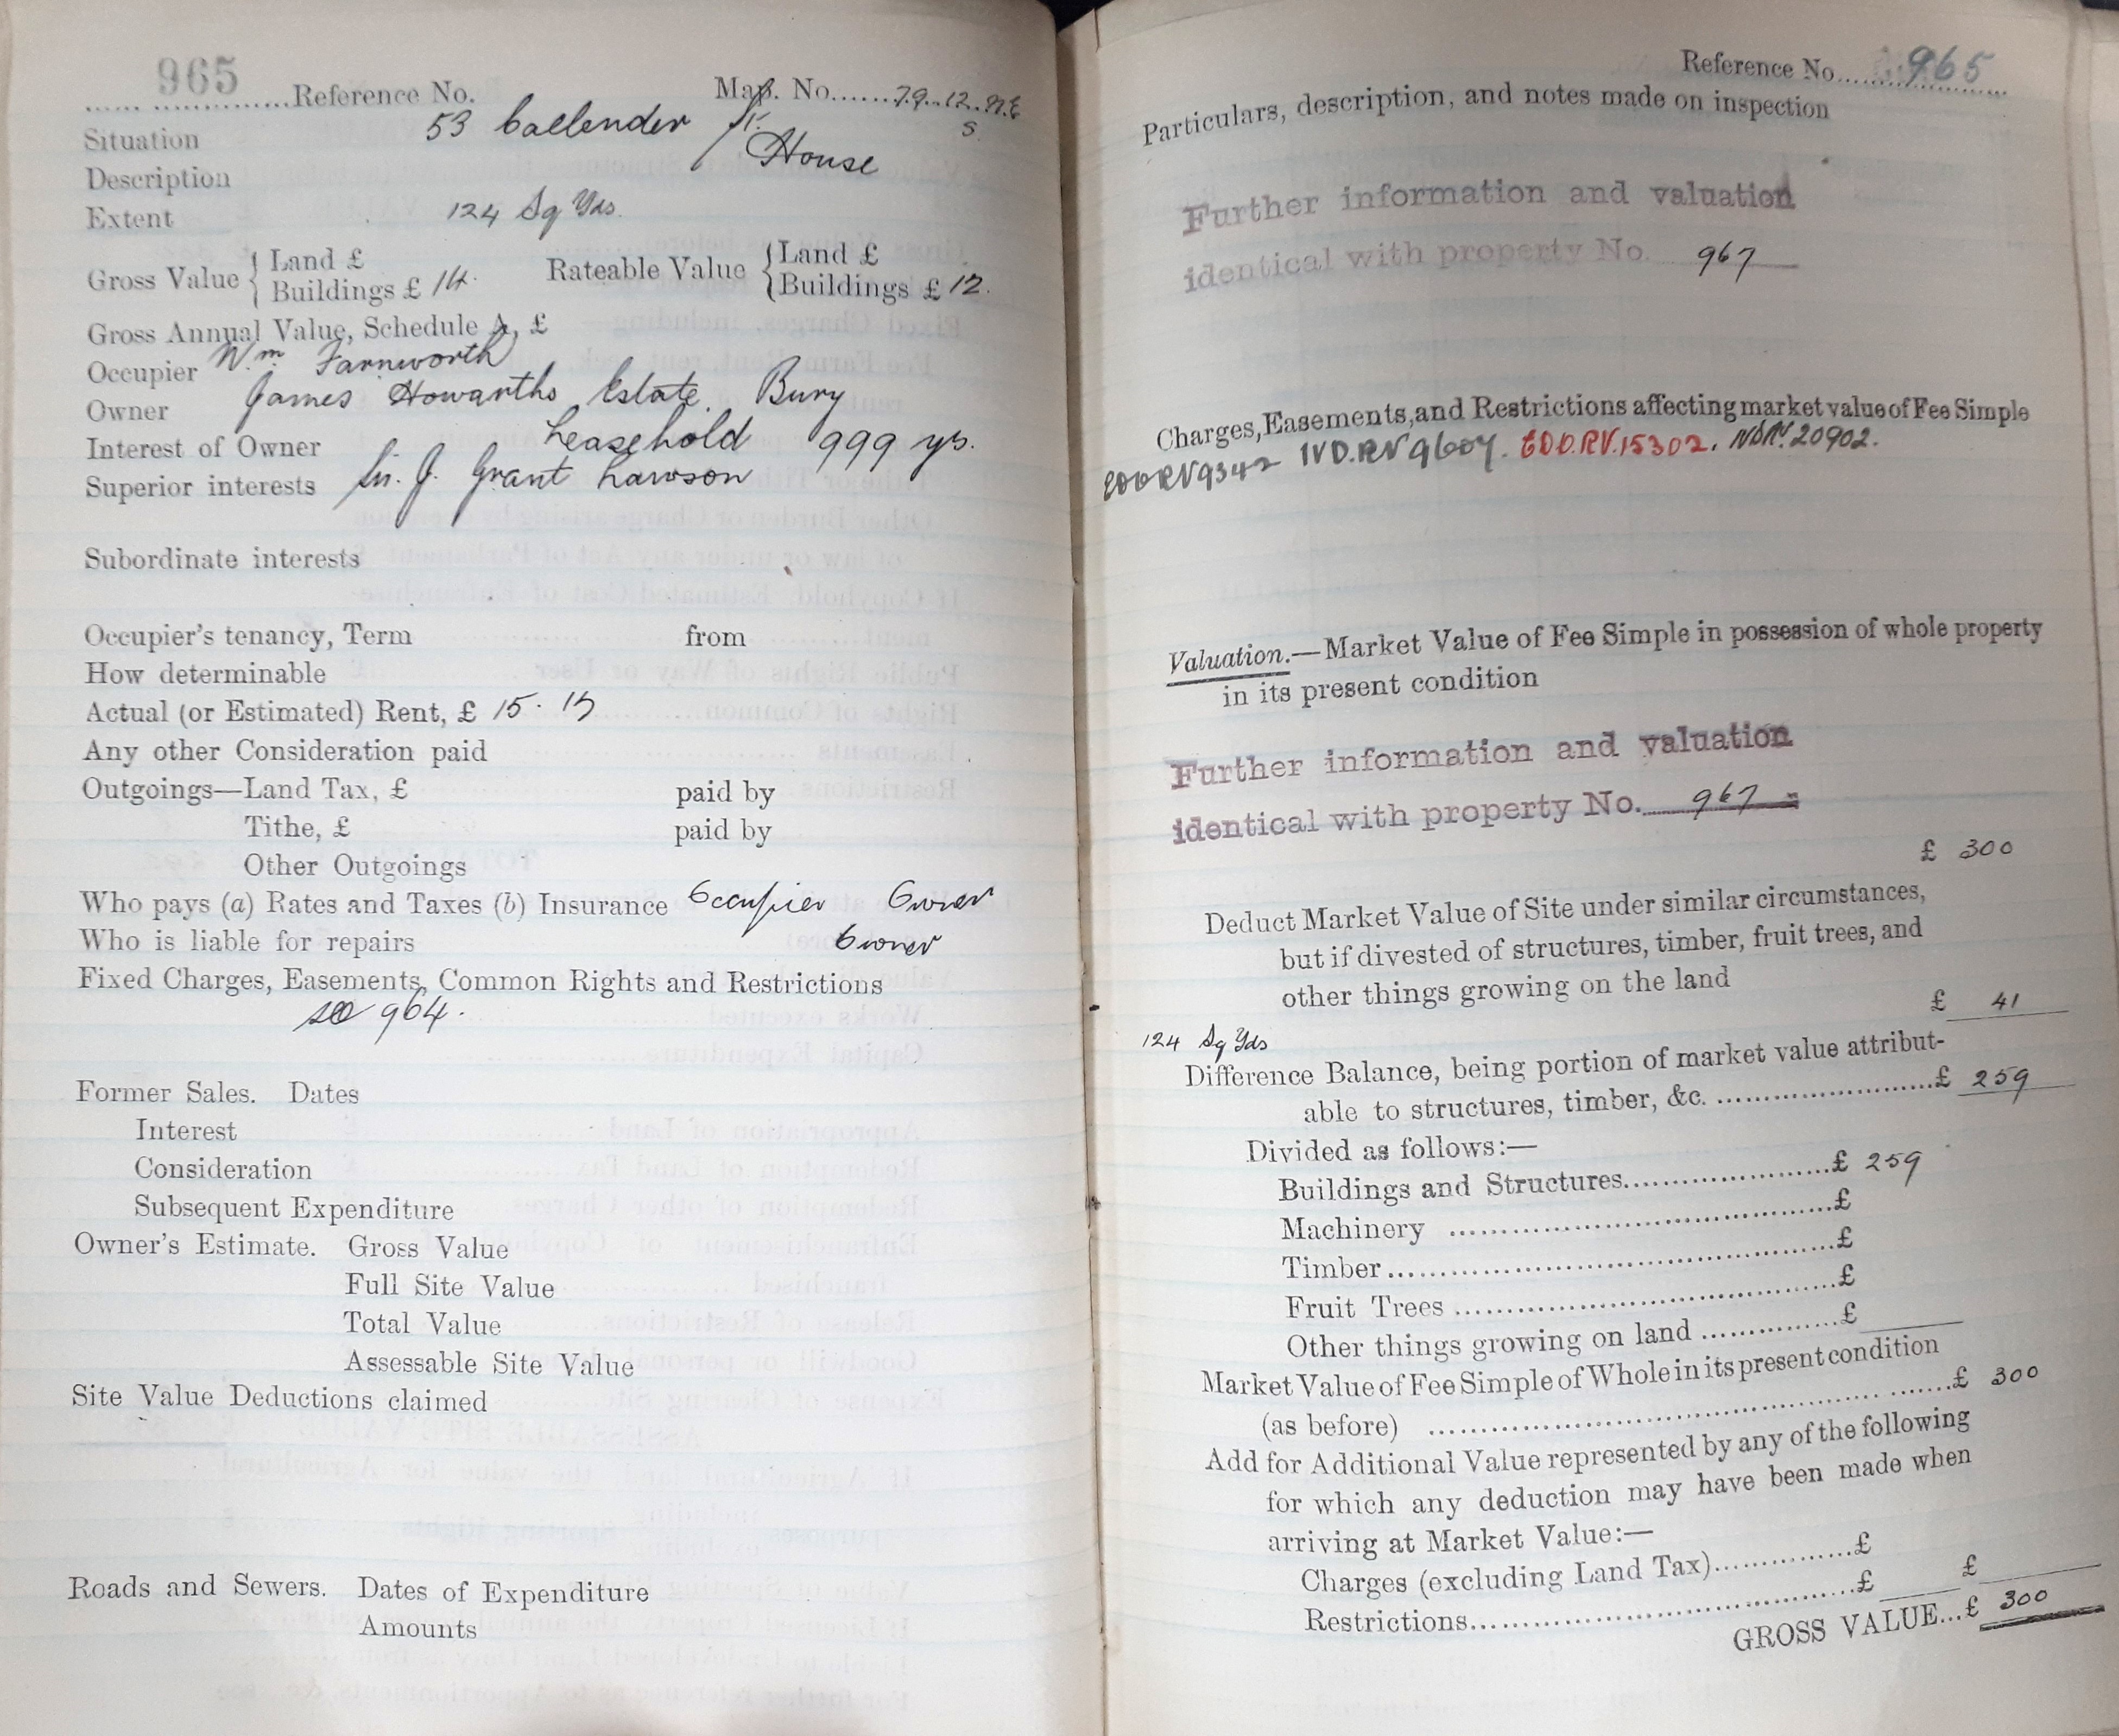 965 Reference No. Map. No. 79.12.N.E
S.
Situation 53 Callender St.
Description House
Extent 124 Sq Yds.
Gross Value { Land £ Rateable Value { Land £
Buildings £ 14. Buildings £ 12.
Gross Annual Value, Schedule A, £
Occupier Wm Farnworth
Owner James Howarths Estate. Bury
Interest of Owner Leasehold 999 ys.
Superior interests Sir. J. Grant Lawson
Subordinate interests
Occupier's tenancy, Term from
How determinable
Actual (or Estimated) Rent, £ 15.
Any other Consideration paid
Outgoings—Land Tax, £ paid by
Tithe, £ paid by
Other Outgoings
Who pays (a) Rates and Taxes (b) Insurance Occupier Owner
Who is liable for repairs Owner
Fixed Charges, Easements, Common Rights and Restrictions
see 964.
Former Sales. Dates
Interest
Consideration
Subsequent Expenditure
Owner's Estimate. Gross Value
Full Site Value
Total Value
Assessable Site Value
Site Value Deductions claimed
Roads and Sewers. Dates of Expenditure
Amounts
Reference No. 965
Particulars, description, and notes made on inspection
Further information and valuation
identical with property No. 967
Charges, Easements, and Restrictions affecting market value of Fee Simple
EDD.RV9342 IVD.RV9607. EDD.RV.15302. 20902.
Valuation.—Market Value of Fee Simple in possession of whole property
in its present condition
Further information and valuation
identical with property No. 967
£ 300
Deduct Market Value of Site under similar circumstances,
but if divested of structures, timber, fruit trees, and
other things growing on the land
£ 41
124 Sq Yds
Difference Balance, being portion of market value attribut-
able to structures, timber, &c. £ 259
Divided as follows:—
Buildings and Structures £ 259
Machinery £
Timber £
Fruit Trees £
Other things growing on land £
Market Value of Fee Simple of Whole in its present condition
(as before) £ 300
Add for Additional Value represented by any of the following
for which any deduction may have been made when
arriving at Market Value:—
Charges (excluding Land Tax) £
Restrictions £ £
GROSS VALUE...£ 300